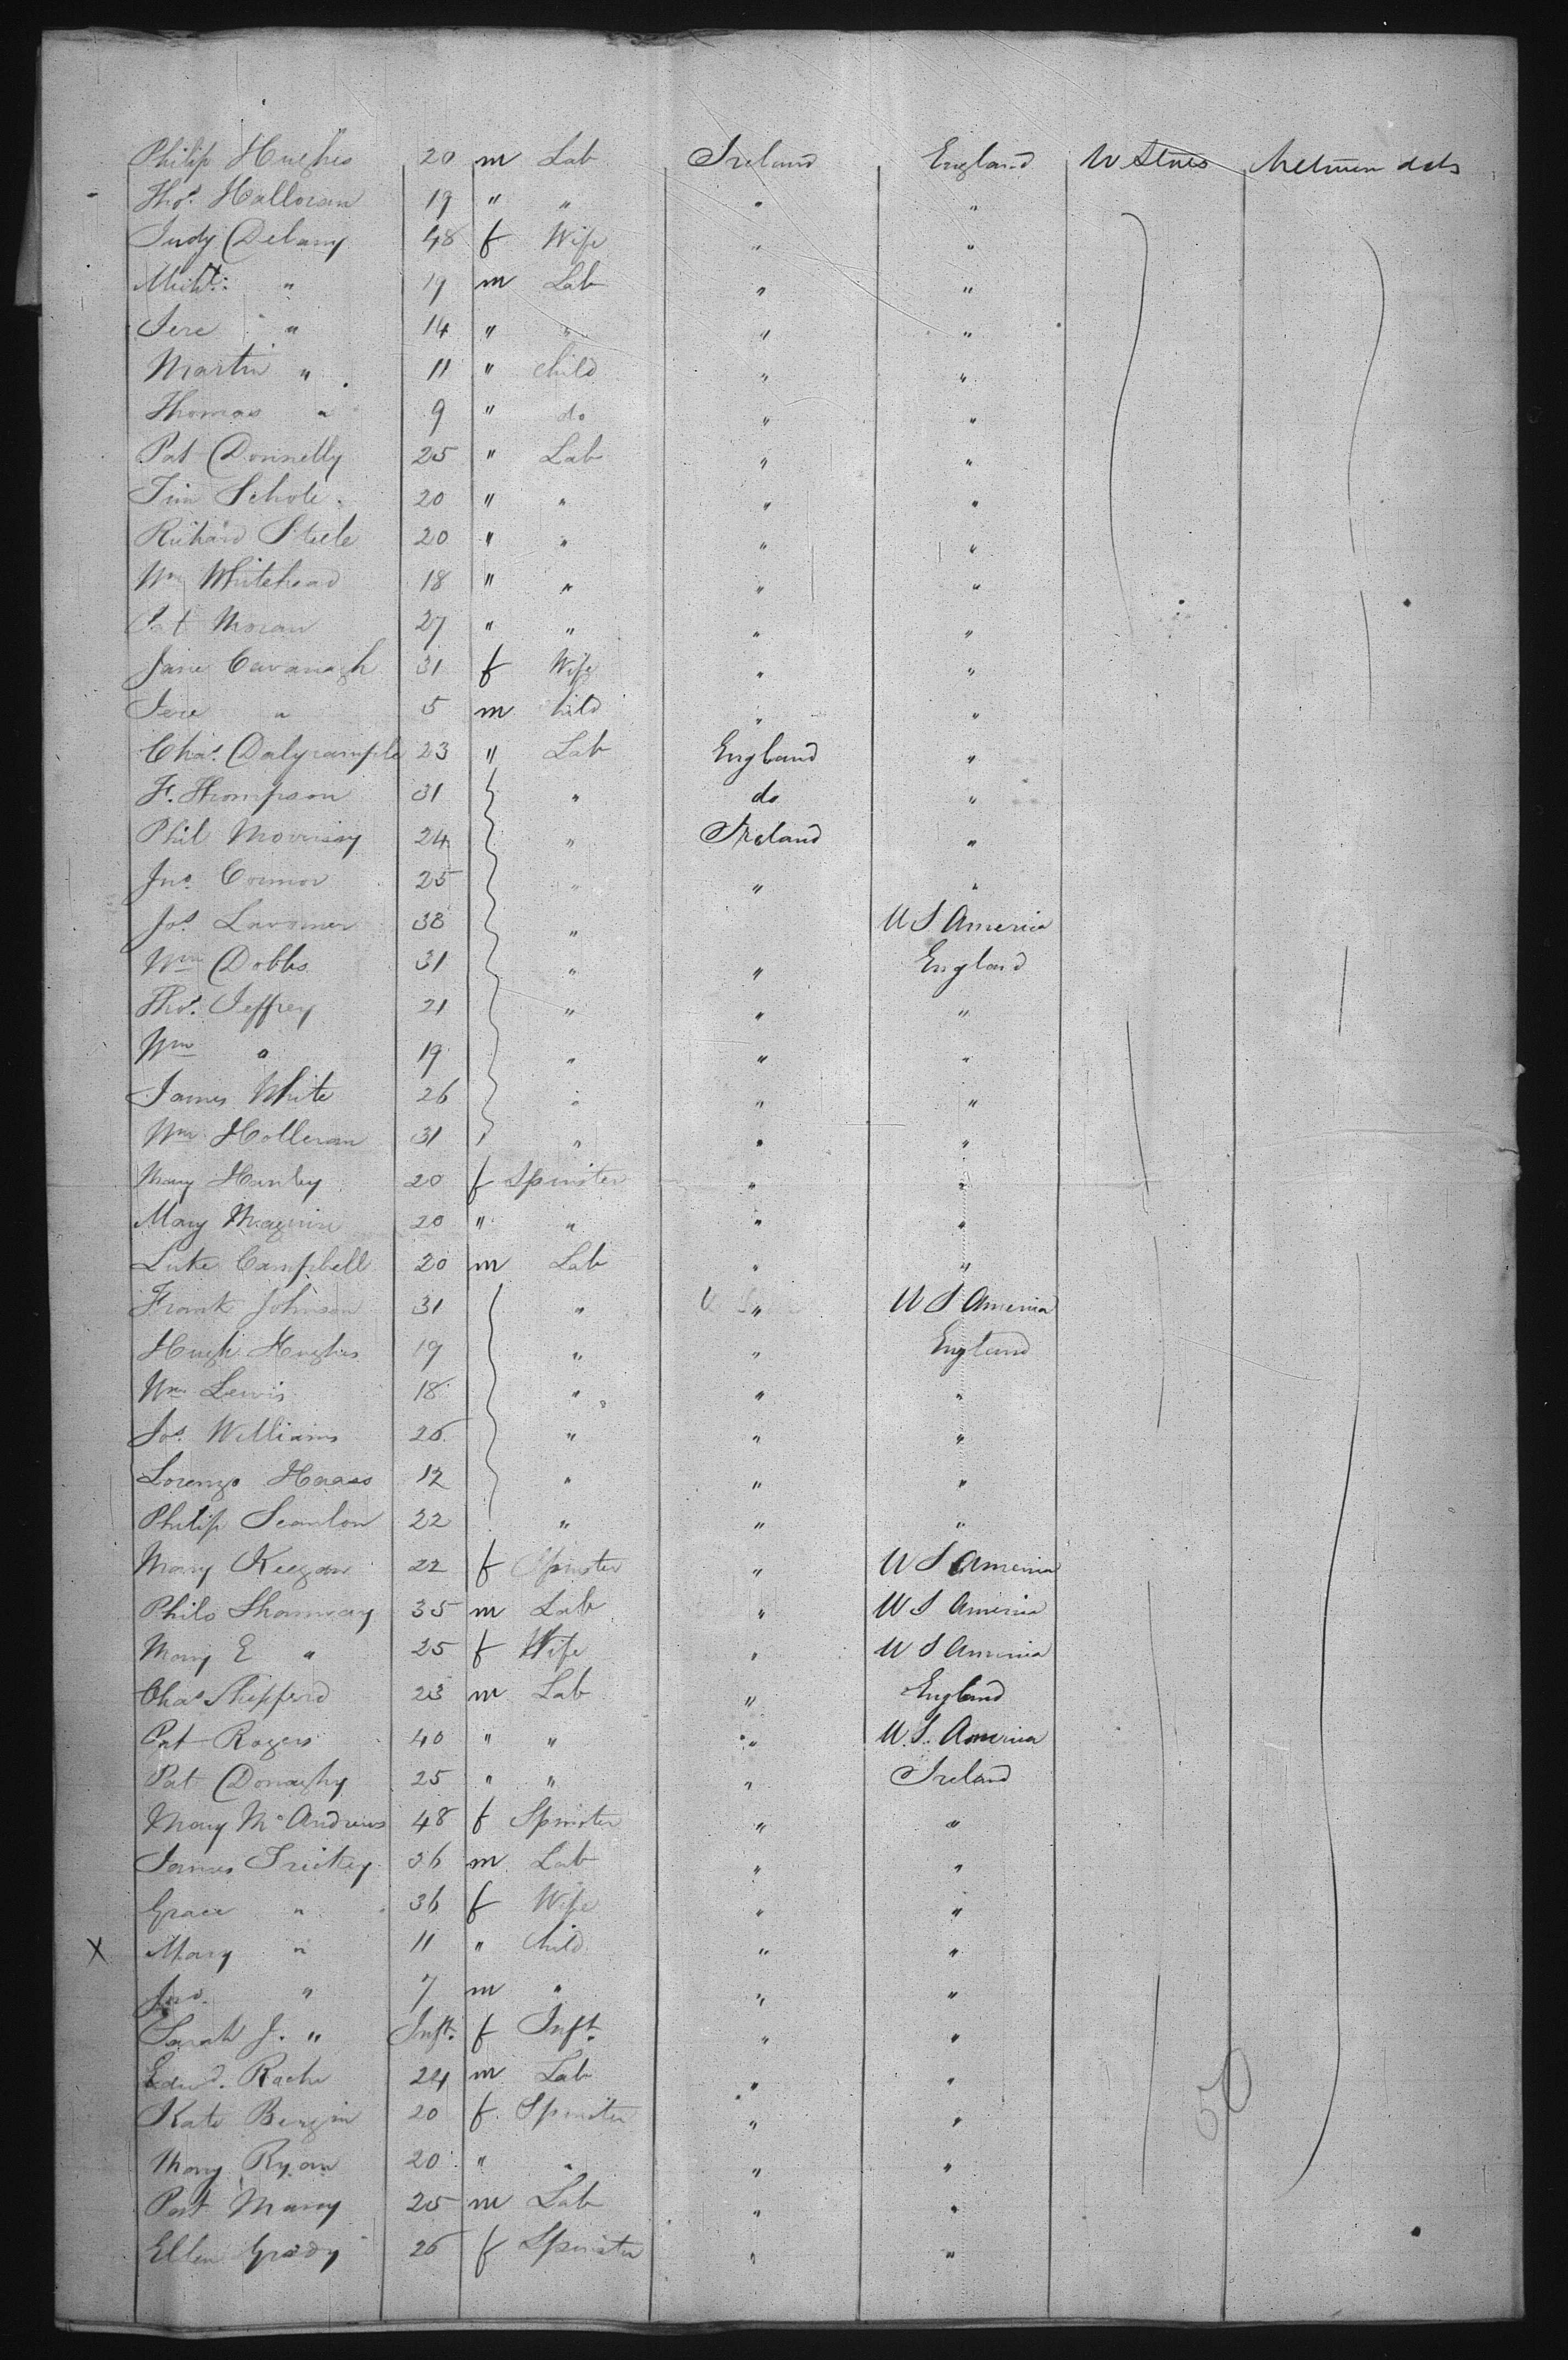 Philip Hughes 20 m Lab Ireland England U States Between decks
Thos. Halloran 19 " " " "
Judy Delany 48 f Wife " "
Michl: " 19 m Lab " "
Jere " 14 " " " "
Martin " 11 " child " "
Thomas " 9 " do " "
Pat Donnelly 25 " Lab " "
Tim 20 " " " "
Richard Steele 20 " " " "
Wm Whitehead 18 " " " "
Pat Moran 27 " " " "
Jane Cavanagh 31 f Wife " "
Jere " 5 m Child " "
Chas. Dalyrample 23 " Lab England "
F. Thompson 31 " do "
Phil Morrissy 24 " Ireland "
Jno. Connor 25 " " "
Jos. 38 " U S America
Wm Dobbs 31 " " England
Thos. Jeffrey 21 " " "
Wm " 19 " " "
James White 26 " " "
Wm Holleran 31 " " "
Mary Hanley 20 f Spinster " "
Mary Maguire 20 " " " "
Luke Campbell 20 m Lab " "
Frank Johnson 31 " " U S America
Hugh Hughes 19 " " England
Wm Lewis 18 " " "
Jos. Williams 26 " " "
Lorenzo Haass 12 " " "
Philip Scanlon 22 " " "
Mary Keegan 22 f Spinster " U S America
Philo Shamway 35 m Lab " U S America
Mary E " 25 f Wife " U S America
Chas Shepperd 23 m Lab " England
Pat Rogers 40 " " " U.S. America
Pat Donaghy 25 " " " Ireland
Mary McAndrews 48 f Spinster " "
James Trickey 36 m Lab " "
Grace " 36 f Wife " "
X Mary " 11 " Child " "
Jno. " 7 m " " "
Sarah J. " Inft. f Inft. " "
Edwd. Roche 24 m Lab " "
Kate Bergin 20 f Spinster " "
Mary Ryan 20 " " " "
Pat 25 m Lab " "
Ellen Grady 26 f Spinster " "
50